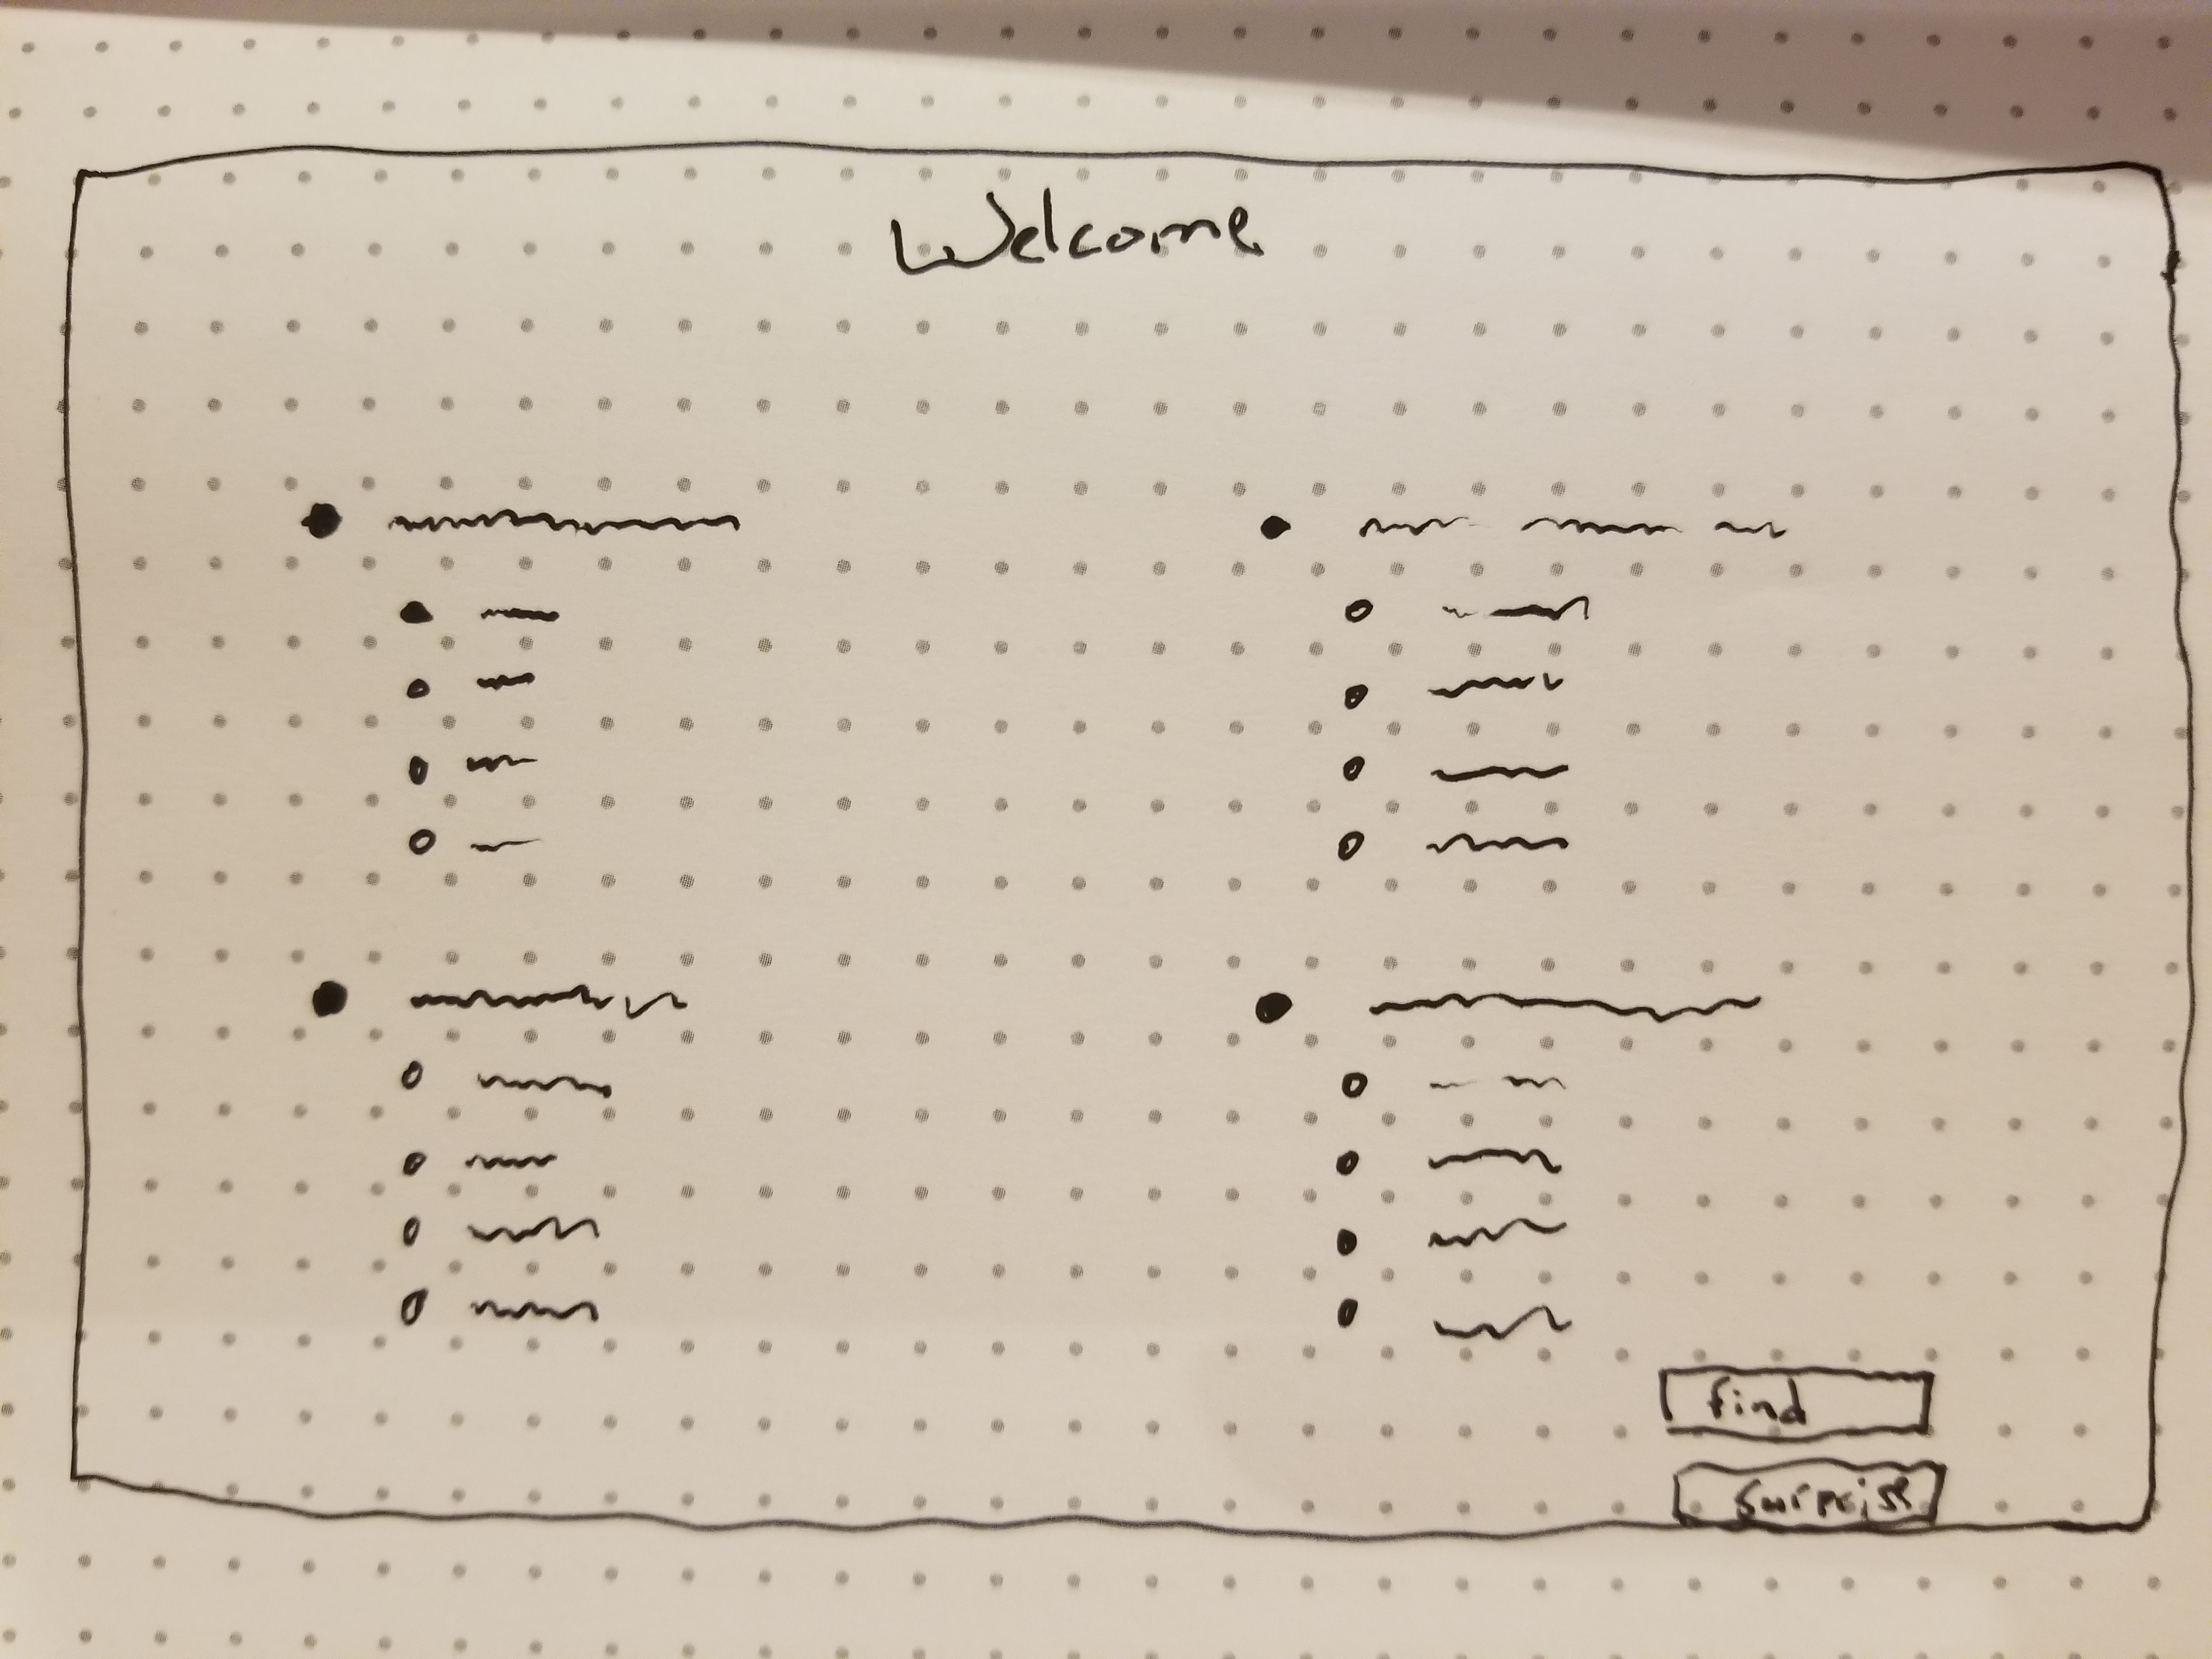 Welcome
find
surprise